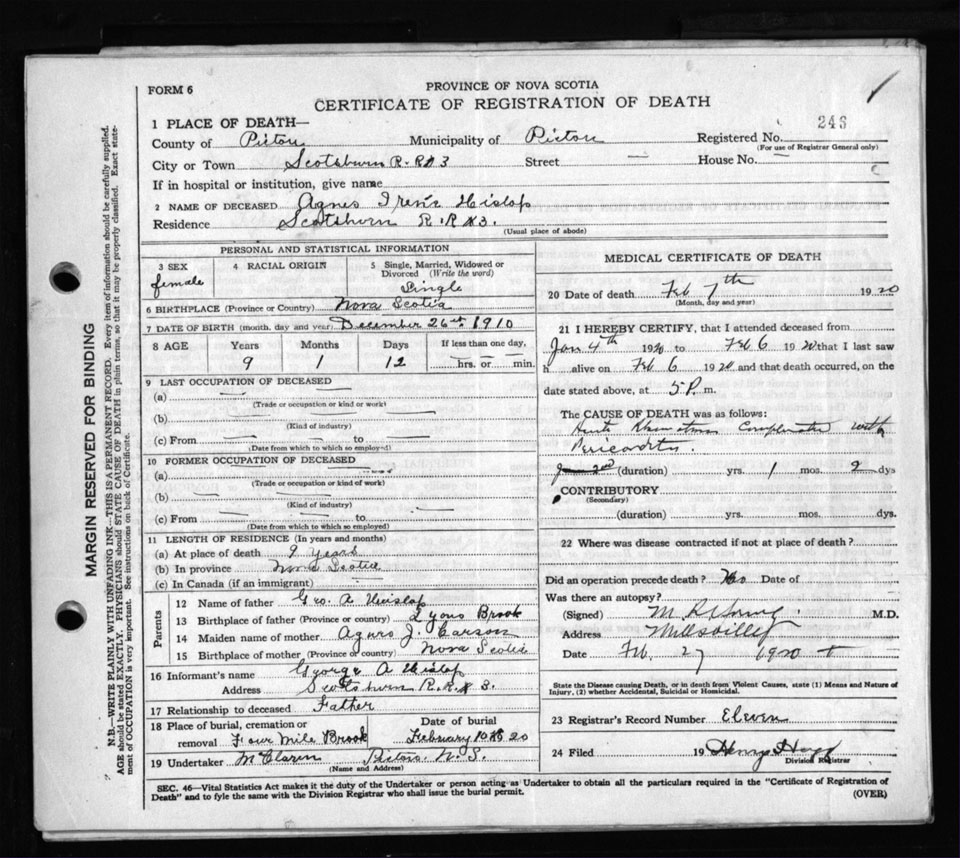 FORM 6
PROVINCE OF NOVA SCOTIA
CERTIFICATE OF REGISTRATION OF DEATH
1 PLACE OF DEATH—
County of Pictou Municipality of Pictou Registered No. 246
(For use of Registrar General only)
City or Town Scotsburn R.R#3 Street — House No. —
If in hospital or institution, give name
2 NAME OF DECEASED Agnes Irene Hislop
Residence Scotsburn R.R#3.
(Usual place of abode)
PERSONAL AND STATISTICAL INFORMATION
3 SEX female
4 RACIAL ORIGIN
5 Single, Married, Widowed or Divorced (Write the word)
Single
6 BIRTHPLACE (Province or Country) Nova Scotia
7 DATE OF BIRTH (month, day and year) December 26th 1910
8 AGE Years Months Days If less than one day,
9 1 12 hrs. or min.
9 LAST OCCUPATION OF DECEASED
(a)
(Trade or occupation or kind or work)
(b)
(Kind of industry)
(c) From to
(Date from which to which so employed)
10 FORMER OCCUPATION OF DECEASED
(a)
(Trade or occupation or kind of work)
(b)
(Kind of industry)
(c) From to
(Date from which to which so employed)
11 LENGTH OF RESIDENCE (In years and months)
(a) At place of death 9 Years
(b) In province Nova Scotia
(c) In Canada (if an immigrant)
Parents
12 Name of father Geo. A Hislop
13 Birthplace of father (Province or country) Lyons Brook
14 Maiden name of mother Agnes J. Carson
15 Birthplace of mother (Province or country) Nova Scotia
16 Informant's name George A Hislop
Address Scotsburn R.R.#3.
17 Relationship to deceased Father
18 Place of burial, cremation or removal Four Mile Brook
Date of burial February 10th 20
19 Undertaker McClaren Pictou N.S.
(Name and Address)
MEDICAL CERTIFICATE OF DEATH
20 Date of death Feb 7th 1920
(Month, day and year)
21 I HEREBY CERTIFY, that I attended deceased from
Jan 4th 1920 to Feb 6 1920 that I last saw
h alive on Feb 6 1920 and that death occurred, on the
date stated above, at 5 P. m.
The CAUSE OF DEATH was as follows:
with
Pericarditis.
(duration) yrs. 1 mos. 2 dys
CONTRIBUTORY
(Secondary)
(duration) yrs. mos. dys.
22 Where was disease contracted if not at place of death?
Did an operation precede death? No Date of
Was there an autopsy?
(Signed) M.D.
Address Millsville
Date Feb. 27 1920
State the Disease causing Death, or in death from Violent Causes, state (1) Means and Nature of
Injury, (2) whether Accidental, Suicidal or Homicidal.
23 Registrar's Record Number Eleven
24 Filed 19 Henry
Division Registrar
SEC. 46—Vital Statistics Act makes it the duty of the Undertaker or person acting as Undertaker to obtain all the particulars required in the "Certificate of Registration of
Death" and to fyle the same with the Division Registrar who shall issue the burial permit.
(OVER)
MARGIN RESERVED FOR BINDING
N.B.—WRITE PLAINLY WITH UNFADING INK—THIS IS A PERMANENT RECORD. Every item of information should be carefully supplied.
AGE should be stated EXACTLY. PHYSICIANS should STATE CAUSE OF DEATH in plain terms, so that it may be properly classified. Exact statement of OCCUPATION is very important. See instructions on back of Certificate.